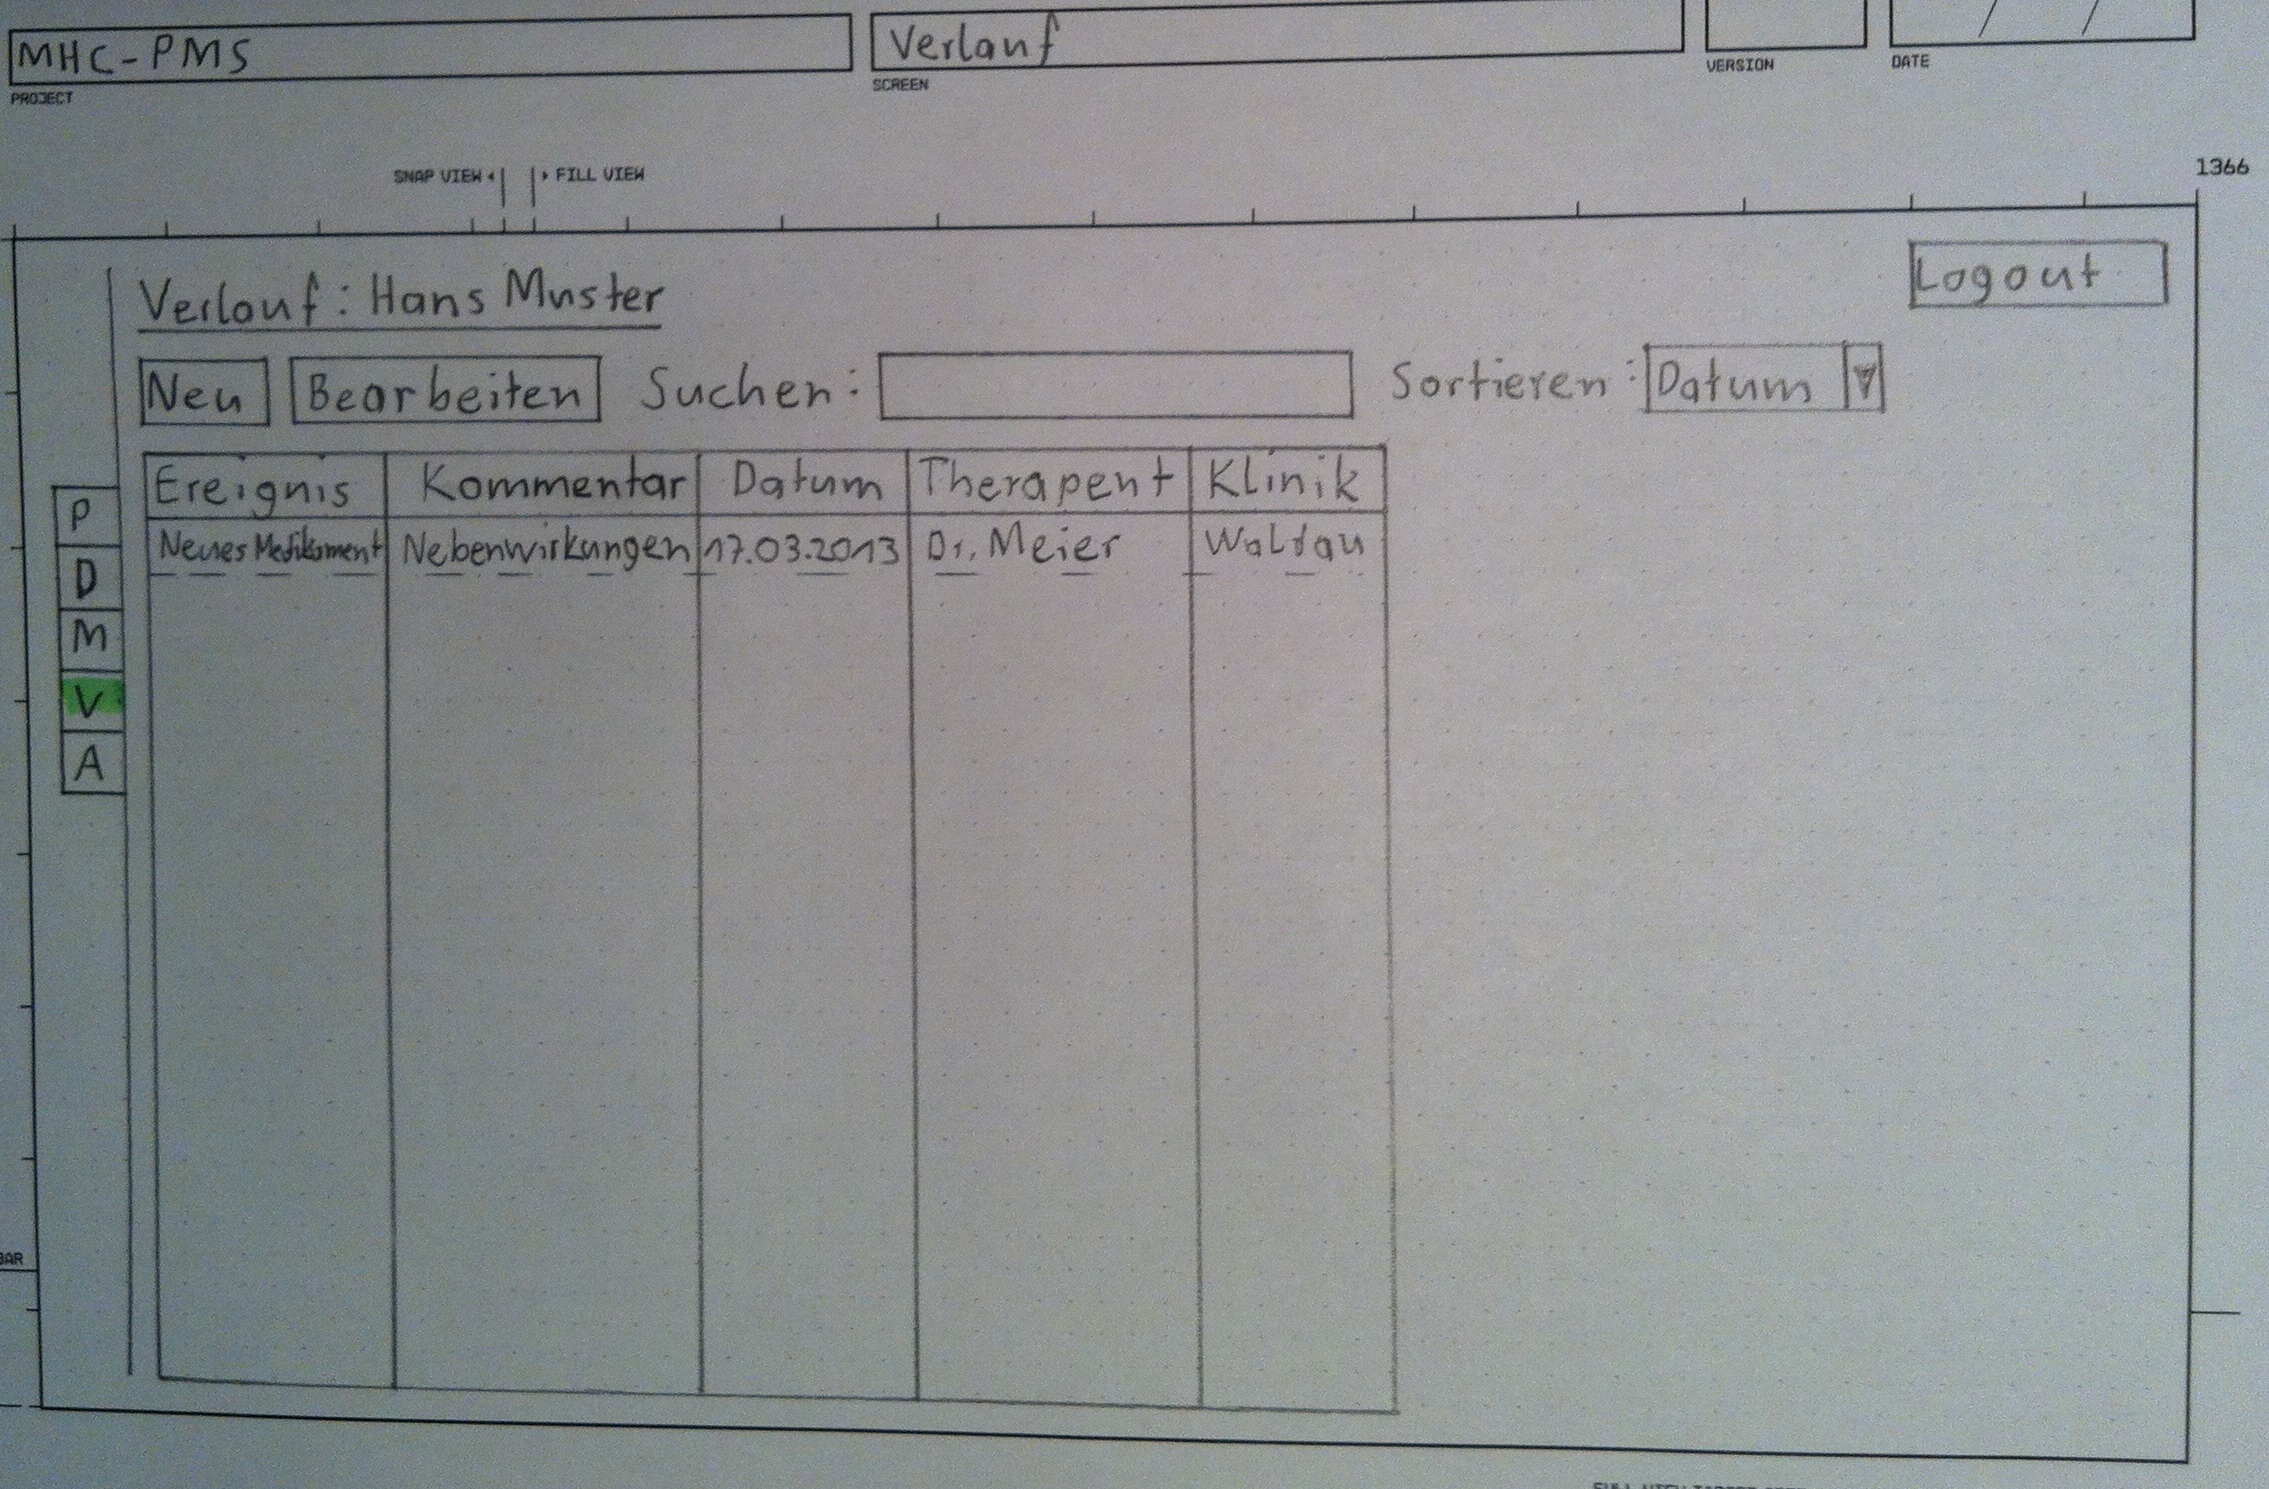 MHC-PMS Verlauf
PROJECT SCREEN VERSION DATE
SNAP VIEW FILL VIEW 1366
Verlauf: Hans Muster Logout
Neu Bearbeiten Suchen: Sortieren: Datum
Ereignis Kommentar Datum Therapent Klinik
Neues Medikament Nebenwirkungen 17.03.2013 Dr. Meier Waldau
P
D
M
V
A